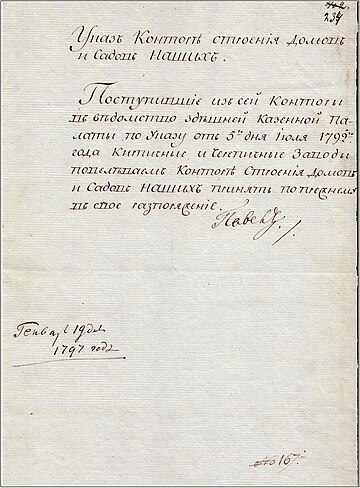 234
Указъ Конторѣ строенія Домовъ
и Садовъ Нашихъ.
Поступившіе изъ сей Конторы
въ вѣдомство здѣшней Казенной Па-
латы по Указу отъ 5го дня Іюля 179
года Кирпичные и черепичные Заводы
повелѣваемъ Конторѣ Строенія Домовъ
и Садовъ Нашихъ принять попрежнему
въ свое разпоряженіе.
Павелъ.
Генваря 19 дня
1797 года
No 167.